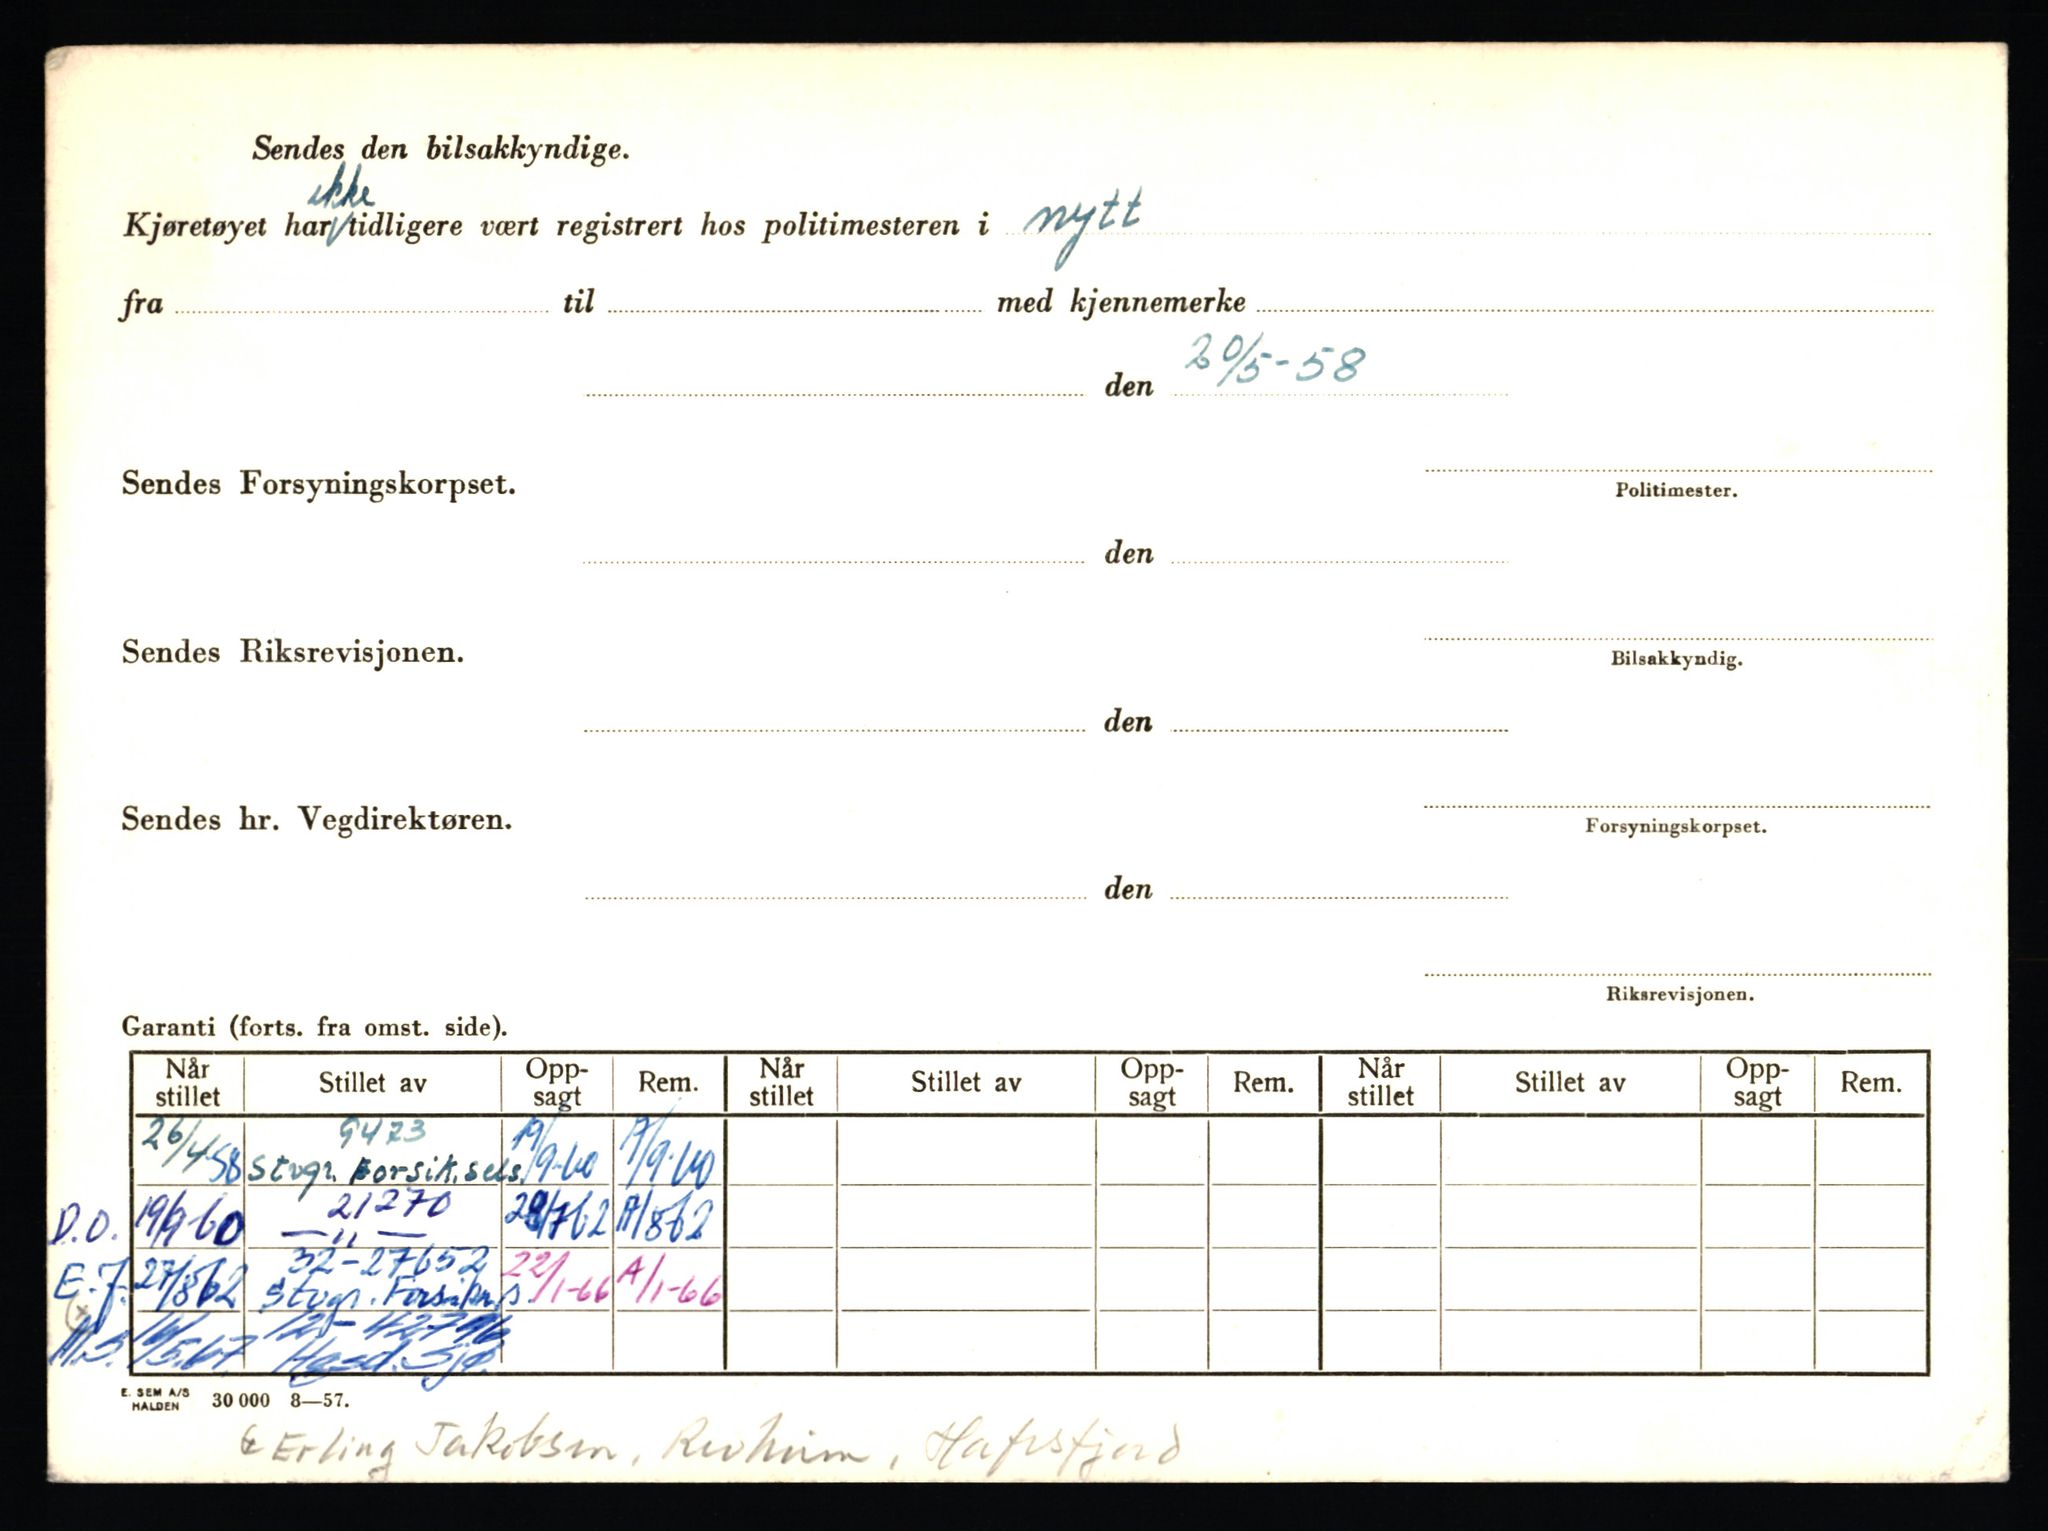 Sendes den bilsakkyndige.
ikke
Kjøretøyet har tidligere vært registrert hos politimesteren i nytt
fra til med kjennemerke
den 20/5-58
Sendes Forsyningskorpset.
Politimester.
den
Sendes Riksrevisjonen.
Bilsakkyndig.
den
Sendes hr. Vegdirektøren.
Forsyningskorpset.
den
Riksrevisjonen.
Garanti (forts. fra omst. side).
Når stillet Stillet av Opp-sagt Rem. Når stillet Stillet av Opp-sagt Rem. Når stillet Stillet av Opp-sagt Rem.
26/4-58 9473 Stvgr. Forsik.sels. 19/9-60 A/9-60
D.O. 19/9-60 21270 —„— 28/7-62 A/8-62
E.J. 27/8-62 32-27652 Stvgr. Forsikr.s 22/1-66 A/1-66
/5.67. 12-42796 Hgsd. Sjø.
E. SEM A/S
HALDEN 30 000 8—57.
Erling Jakobsen, Revheim, Hafrsfjord